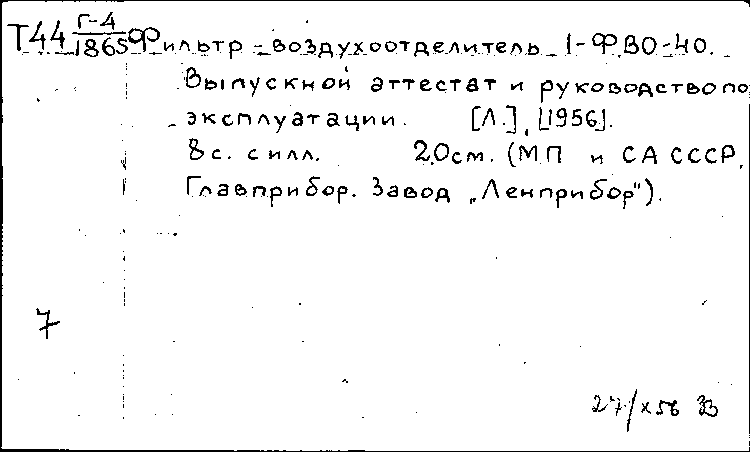 Т44 Г-4/1865 Фильтр-воздухоотделитель 1-ФВО-40.
Выпускной аттестат и руководство по
эксплуатации. [Л.], [1956].
8с. с илл. 20см. (МП и СА СССР.
Главприбор. Завод „Ленприбор").
7
27/X56